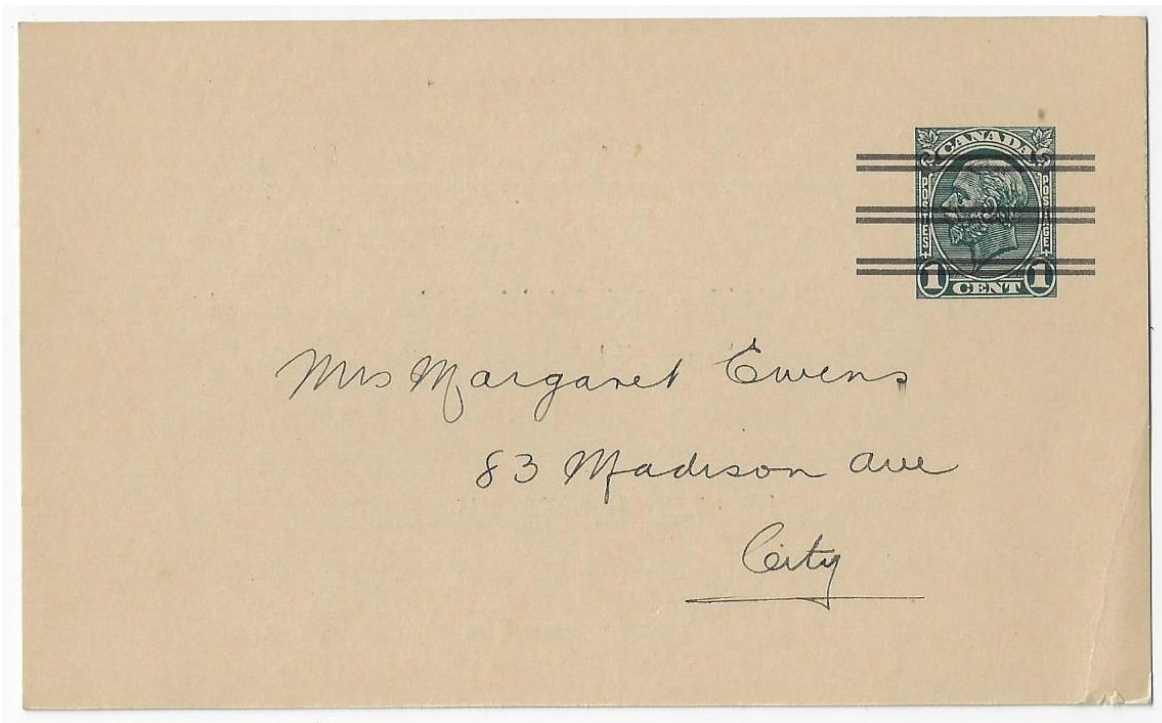 CANADA
POSTES POSTAGE
1 CENT 1
Mrs Margaret Ewens
83 Madison Ave
City